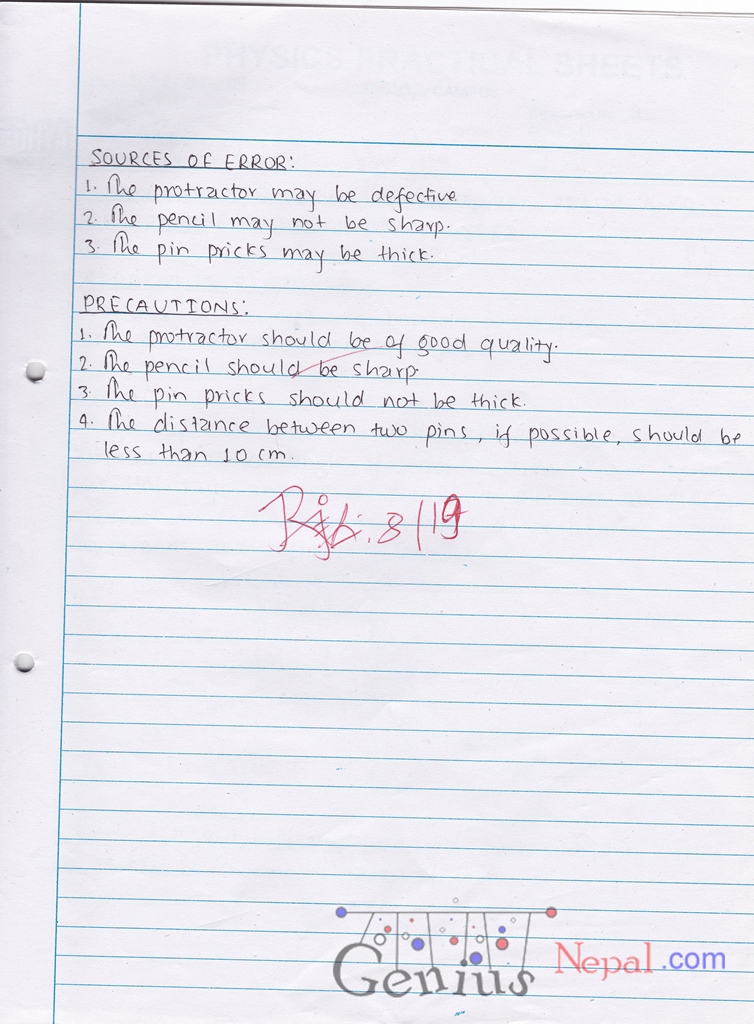 PHYSICS PRACTICAL SHEETS
SOURCES OF ERROR:
1. The protractor may be defective.
2. The pencil may not be sharp.
3. The pin pricks may be thick.
PRECAUTIONS:
1. The protractor should be of good quality.
2. The pencil should be sharp.
3. The pin pricks should not be thick.
4. The distance between two pins, if possible, should be
less than 10 cm.
8/19
Genius Nepal.com